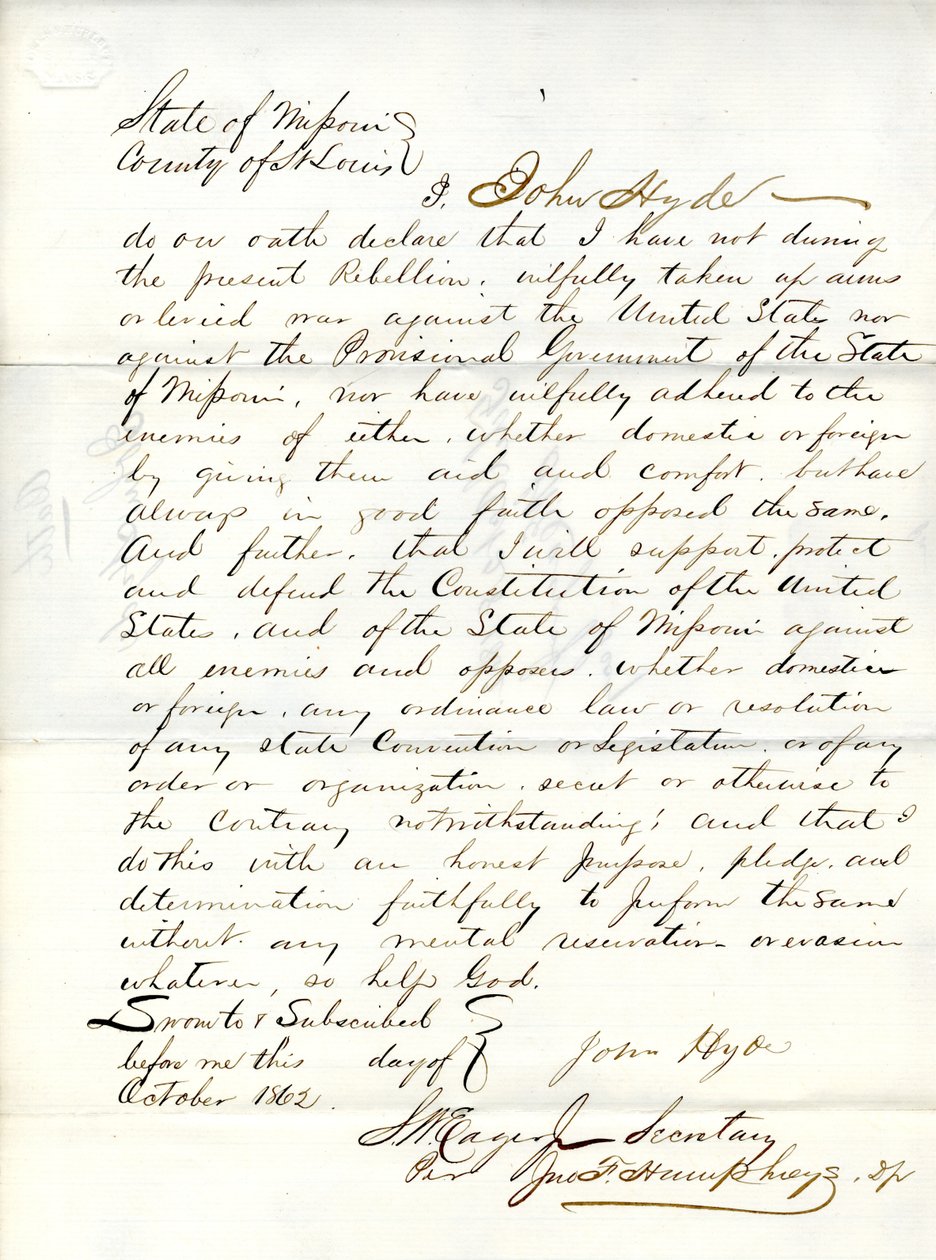 State of Missouri
County of St Louis
I, John Hyde
do on oath declare that I have not during
the present Rebellion, wilfully taken up arms
or levied war against the United States nor
against the Provisional Government of the State
of Missouri, nor have wilfully adhered to the
enemies of either, whether domestic or foreign
by giving them aid and comfort, but have
always in good faith opposed the same.
And further, that I will support, protect
and defend the Constitution of the United
States, and of the State of Missouri against
all enemies and opposers, whether domestic
or foreign, any ordinance law or resolution
of any state Convention or Legislature, or of any
order or organization, secret or otherwise to
the contrary notwithstanding; and that I
do this with an honest purpose, pledge, and
determination faithfully to perform the same
without any mental reservation or evasion
whatever, so help God.
Sworn to & Subscribed
before me this day of
October 1862.
John Hyde
S.W. Eager Jr Secretary
Per Jno F. Humphreys, Dp